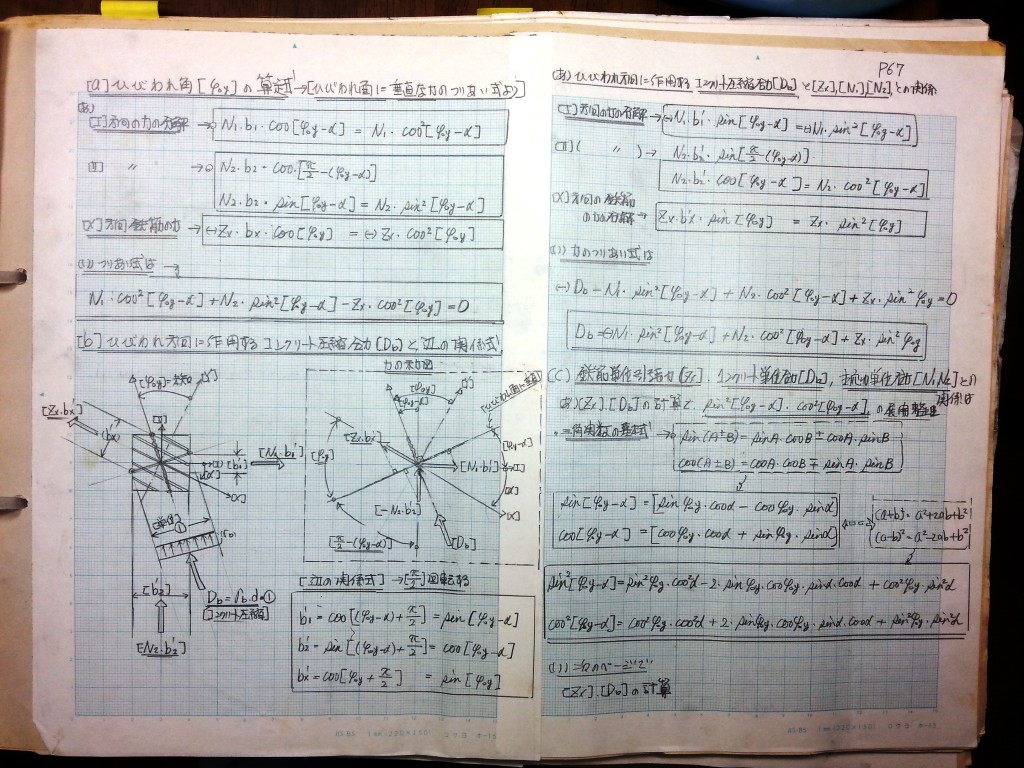 [a] ひびわれ角[φoy]の算定式→[ひびわれ角に垂直な力のつりあい式より]
(あ)
[I]方向の力の分解 → N₁·b₁·cos[φoy-α] = N₁·cos²[φoy-α]
[II] 〃 → N₂·b₂·cos[π/2-(φoy-α)]
N₂·b₂·sin[φoy-α] = N₂·sin²[φoy-α]
[X]方向鉄筋の力 → (-)Zx·bx·cos[φoy] = (-)Zx·cos²[φoy]
(い) つりあい式は →
N₁·cos²[φoy-α]+N₂·sin²[φoy-α]-Zx·cos²[φoy]=0
[b] ひびわれ方向に作用するコンクリート圧縮合力[Db]と辺の関係式
[φoy]
[Zx·bx]
[N₁·b₁']
[b₁']
[α]
[X]
[単位]
①
[b₂']
Db=σb·d×①
[コンクリート圧縮]
[N₂·b₂']
力の示力図
[ひびわれ角に垂直]
[φoy]
[φoy-α]
[Y]
[Zx·bx]
[φoy]
[N₁·b₁']
[φoy-α]
[I]
[α]
[X]
[-N₂·b₂]
[π/2-(φoy-α)]
[Db]
[辺の関係式]→[π/2]回転する
b₁' = cos[(φoy-α)+π/2] = sin[φoy-α]
b₂' = sin[(φoy-α)+π/2] = cos[φoy-α]
bx' = cos[φoy+π/2] = sin[φoy]
P67
(あ) ひびわれ方向に作用するコンクリート圧縮合力[Db]と[Zx],[N₁],[N₂],との関係
[I]方向の力の分解 → (-)N₁·b₁'·sin[φoy-α] = (-)N₁·sin²[φoy-α]
[II]( 〃 ) → N₂·b₂'·sin[π/2-(φoy-α)]
N₂·b₂'·cos[φoy-α] = N₂·cos²[φoy-α]
[X]方向の鉄筋
の力の分解 → Zx·bx'·sin[φoy] = Zx·sin²[φoy]
(い) 力のつりあい式は
(-)Db-N₁·sin²[φoy-α]+N₂·cos²[φoy-α]+Zx·sin²φoy=0
Db=(-)N₁·sin²[φoy-α]+N₂·cos²[φoy-α]+Zx·sin²φoy
(C) 鉄筋単位引張力[Zx]、コンクリート単位合力[Db]、主応力単位合力[N₁N₂]との
関係は
(あ)[Zx].[Db]の計算で、sin²[φoy-α]、cos²[φoy-α]、の展開整理
·=三角関数の基本式 → sin(A±B)=sinA·cosB±cosA·sinB
cos(A±B)=cosA·cosB∓sinA·sinB
sin[φoy-α]=[sinφoy·cosα-cosφoy·sinα]
cos[φoy-α]=[cosφoy·cosα+sinφoy·sinα]
(a+b)²=a²+2ab+b²
(a-b)²=a²-2ab+b²
sin²[φoy-α]=sin²φoy·cos²α-2·sinφoy·cosφoy·sinα·cosα+cos²φoy·sin²α
cos²[φoy-α]=cos²φoy·cos²α+2·sinφoy·cosφoy·sinα·cosα+sin²φoy·sin²α
(い) 次のページで
[Zx].[Db]の計算
1mm(220×150) コクヨ ホ-15
1mm(220×150) コクヨ ホ-15